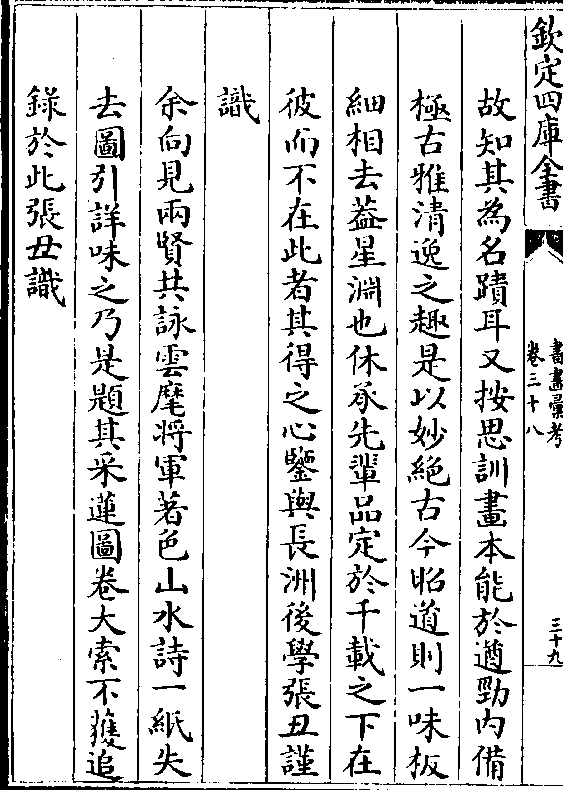 欽定四庫全書
書畫彙考
卷三十八
三十九
故知其為名蹟耳又按思訓畫本能於遒勁內備
極古雅清逸之趣是以妙絕古今昭道則一味板
細相去葢星淵也休承先輩品定於千載之下在
彼而不在此者其得之心鑒與長洲後學張丑謹
識
余向見兩賢共詠雲麾將軍著色山水詩一紙失
去圖引詳味之乃是題其采蓮圖卷大索不獲追
錄於此張丑識